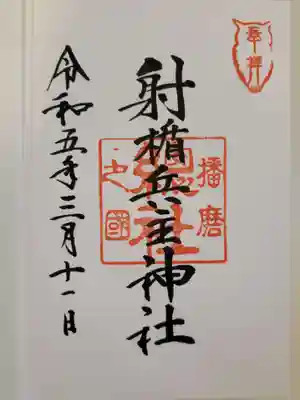 奉拝
射楯兵主神社
播磨
総社
之國
令和五年三月十一日